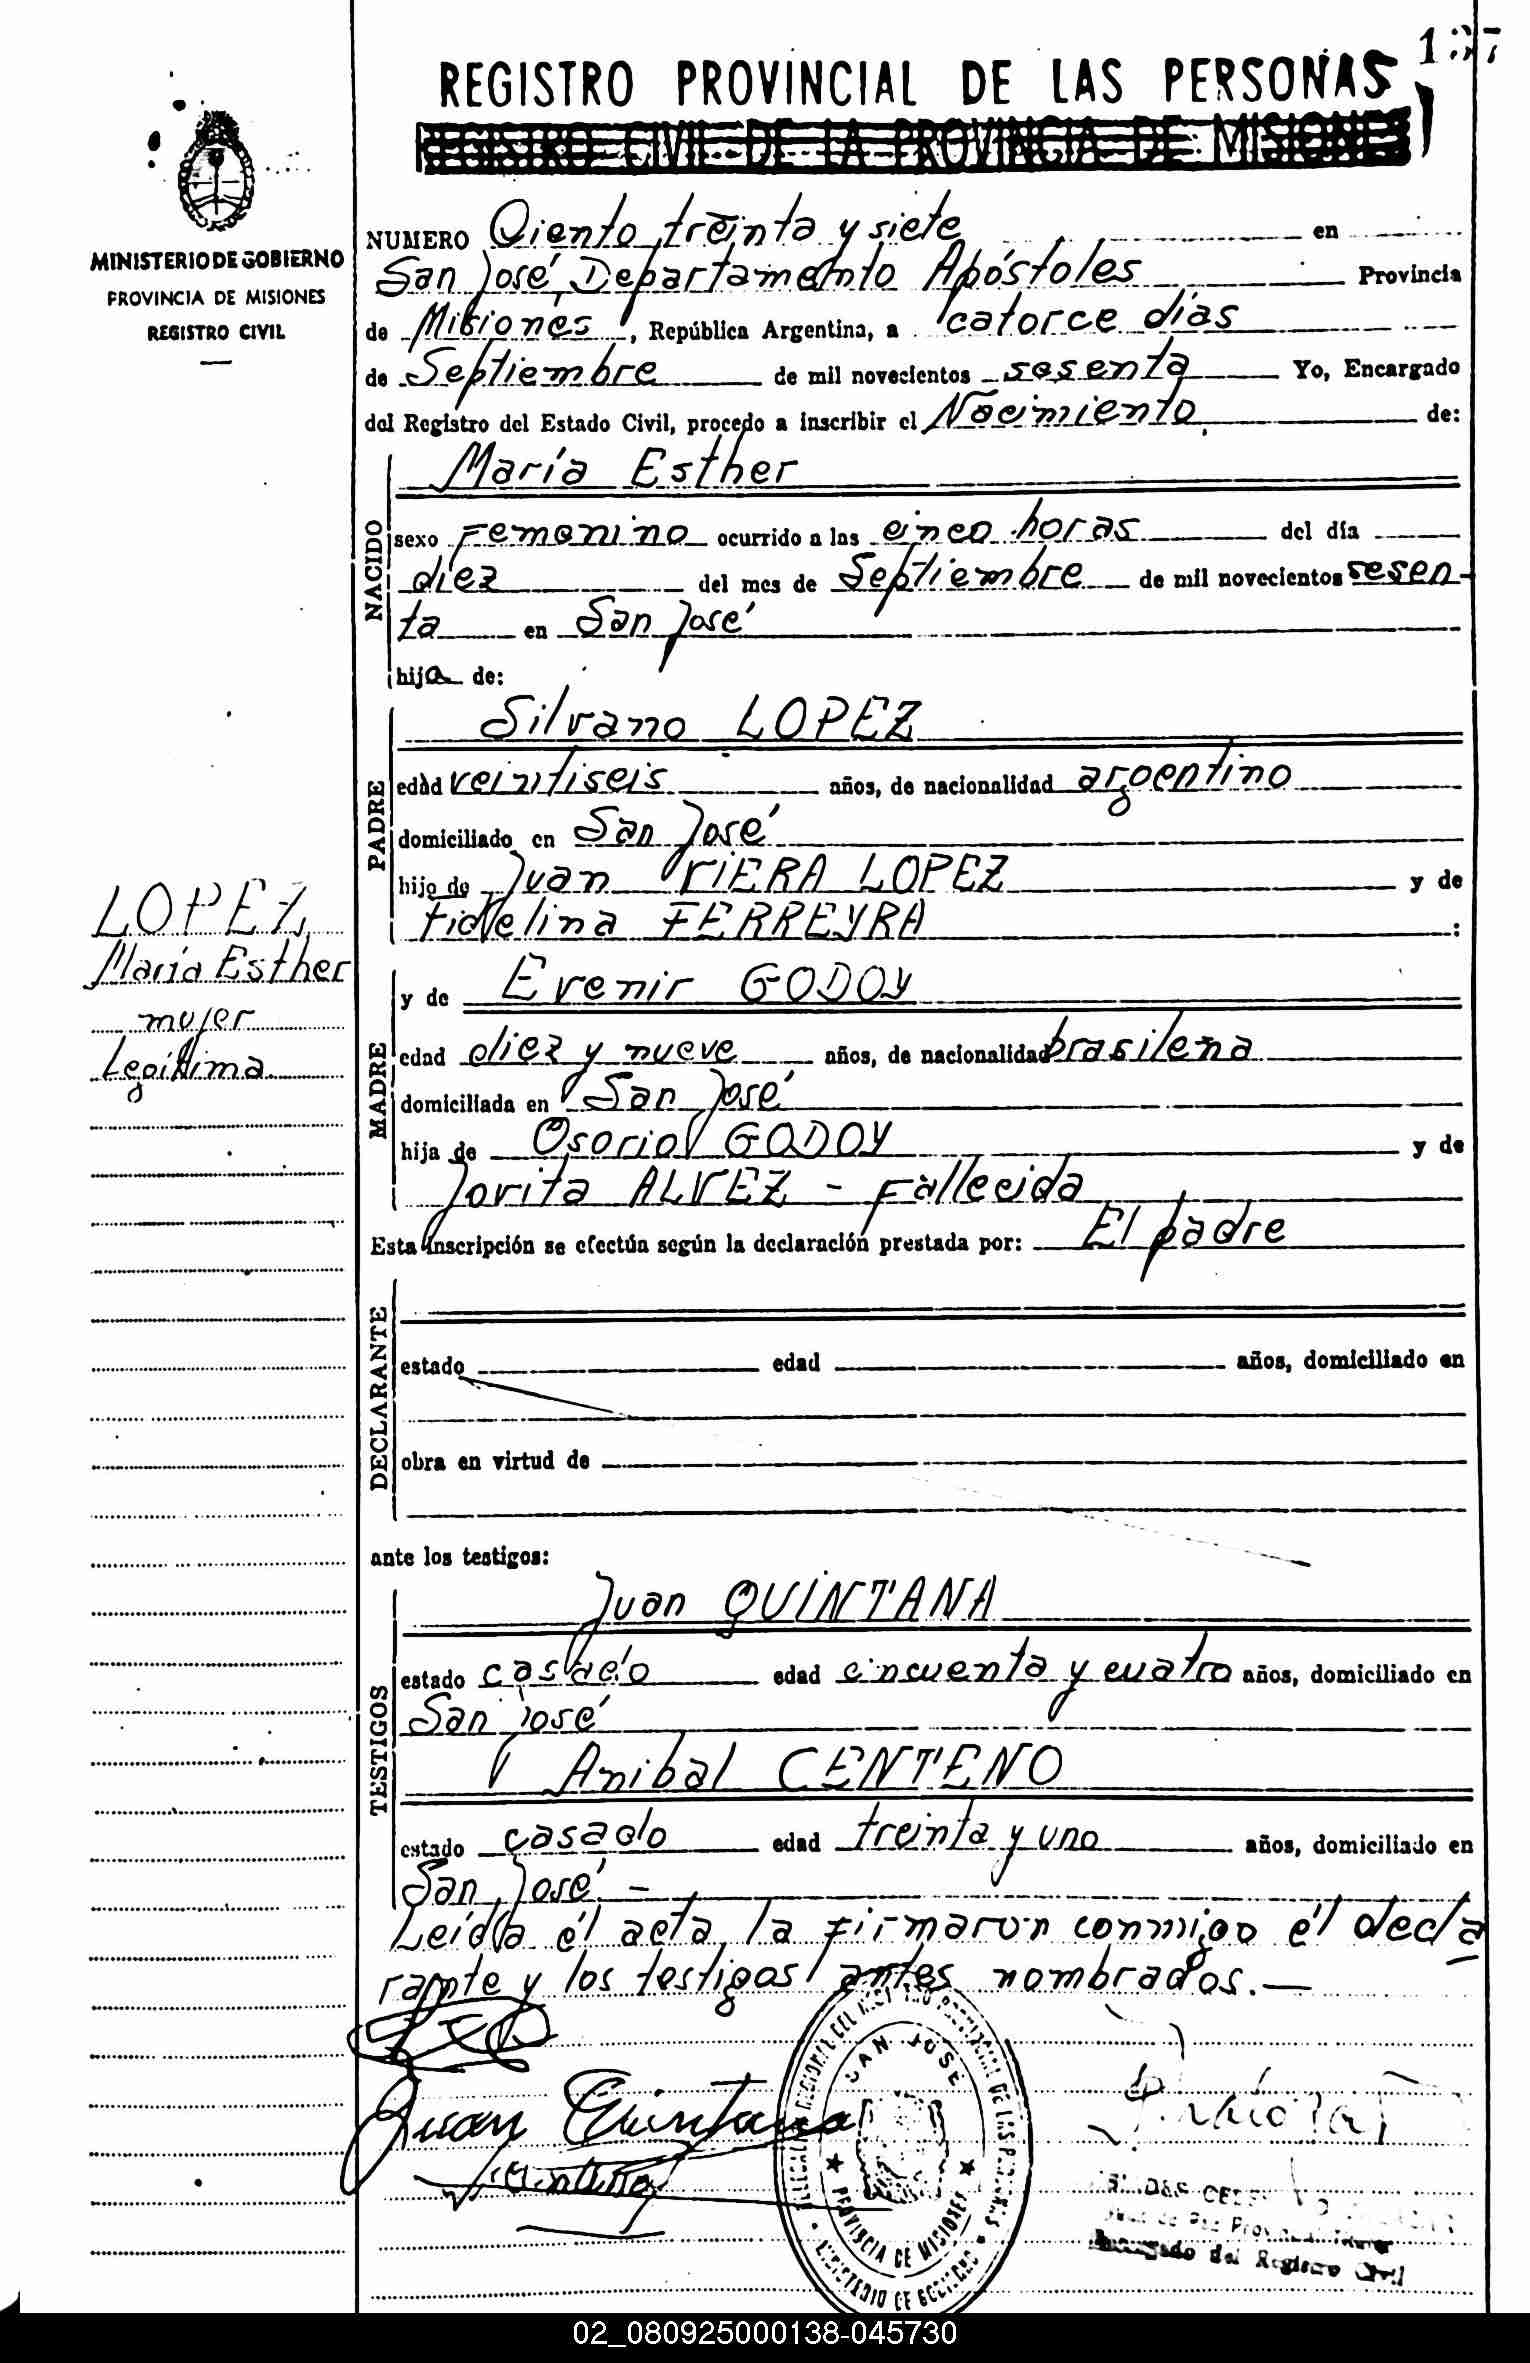 137
REGISTRO PROVINCIAL DE LAS PERSONAS
REGISTRO CIVIL DE LA PROVINCIA DE MISIONES
MINISTERIO DE GOBIERNO
PROVINCIA DE MISIONES
REGISTRO CIVIL
NUMERO Ciento treinta y siete en
San José, Departamento Apóstoles Provincia
de Misiones, República Argentina, a catorce días
de Septiembre de mil novecientos sesenta Yo, Encargado
del Registro del Estado Civil, procedo a inscribir el Nacimiento de:
NACIDO
María Esther
sexo Femenino ocurrido a las cinco horas del día
diez del mes de Septiembre de mil novecientos sesen-
ta en San José
hija de:
PADRE
Silvano LOPEZ
edad veintiseis años, de nacionalidad argentino
domiciliado en San José
hijo de Juan VIERA LOPEZ y de
Fidelina FERREYRA :
LOPEZ
María Esther
mujer
Legítima
MADRE
y de Evenir GODOY
edad diez y nueve años, de nacionalidad brasileña
domiciliada en San José
hija de Osorio GODOY y de
Jorita ALVEZ - Fallecida
Esta inscripción se efectúa según la declaración prestada por: El padre
DECLARANTE
estado edad años, domiciliado en
obra en virtud de
ante los testigos:
TESTIGOS
Juan QUINTANA
estado casado edad cincuenta y cuatro años, domiciliado en
San José
Anibal CENTENO
estado casado edad treinta y uno años, domiciliado en
San José.-
Leída el acta, la firmaron conmigo el decla
rante y los testigos antes nombrados.—
Juan Quintana
SAN JOSE
PROVINCIA DE MISIONES
MINISTERIO DE GOBIERNO
Encargado del Registro Civil
02_080925000138-045730